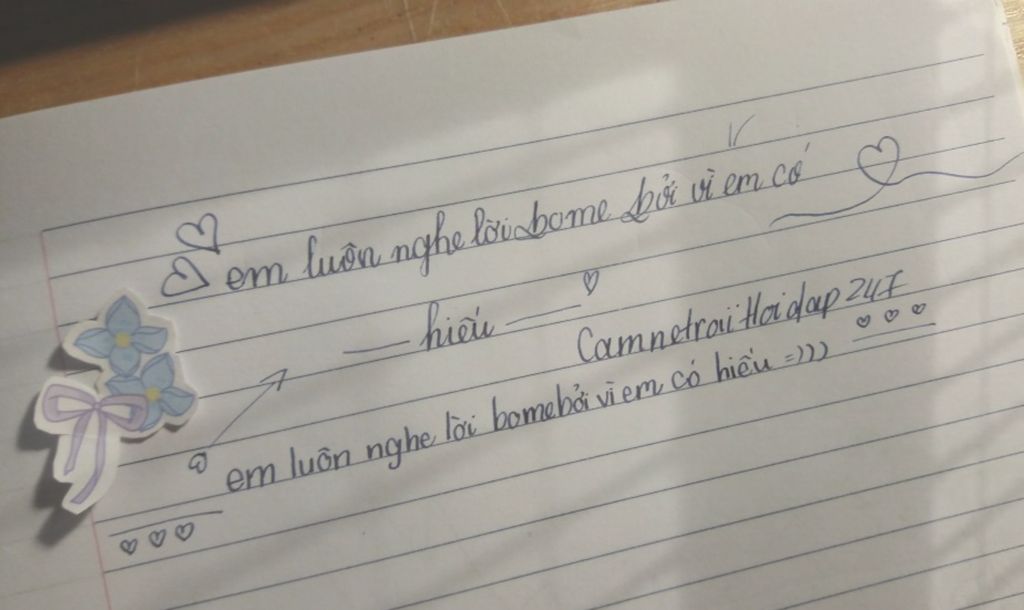 em luôn nghe lời bome bởi vì em có
hiếu
Camnetraii Hoidap247
em luôn nghe lời bome bởi vì em có hiếu =)))